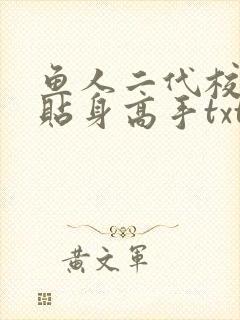 鱼人二代校
贴身高手txt
黄文军